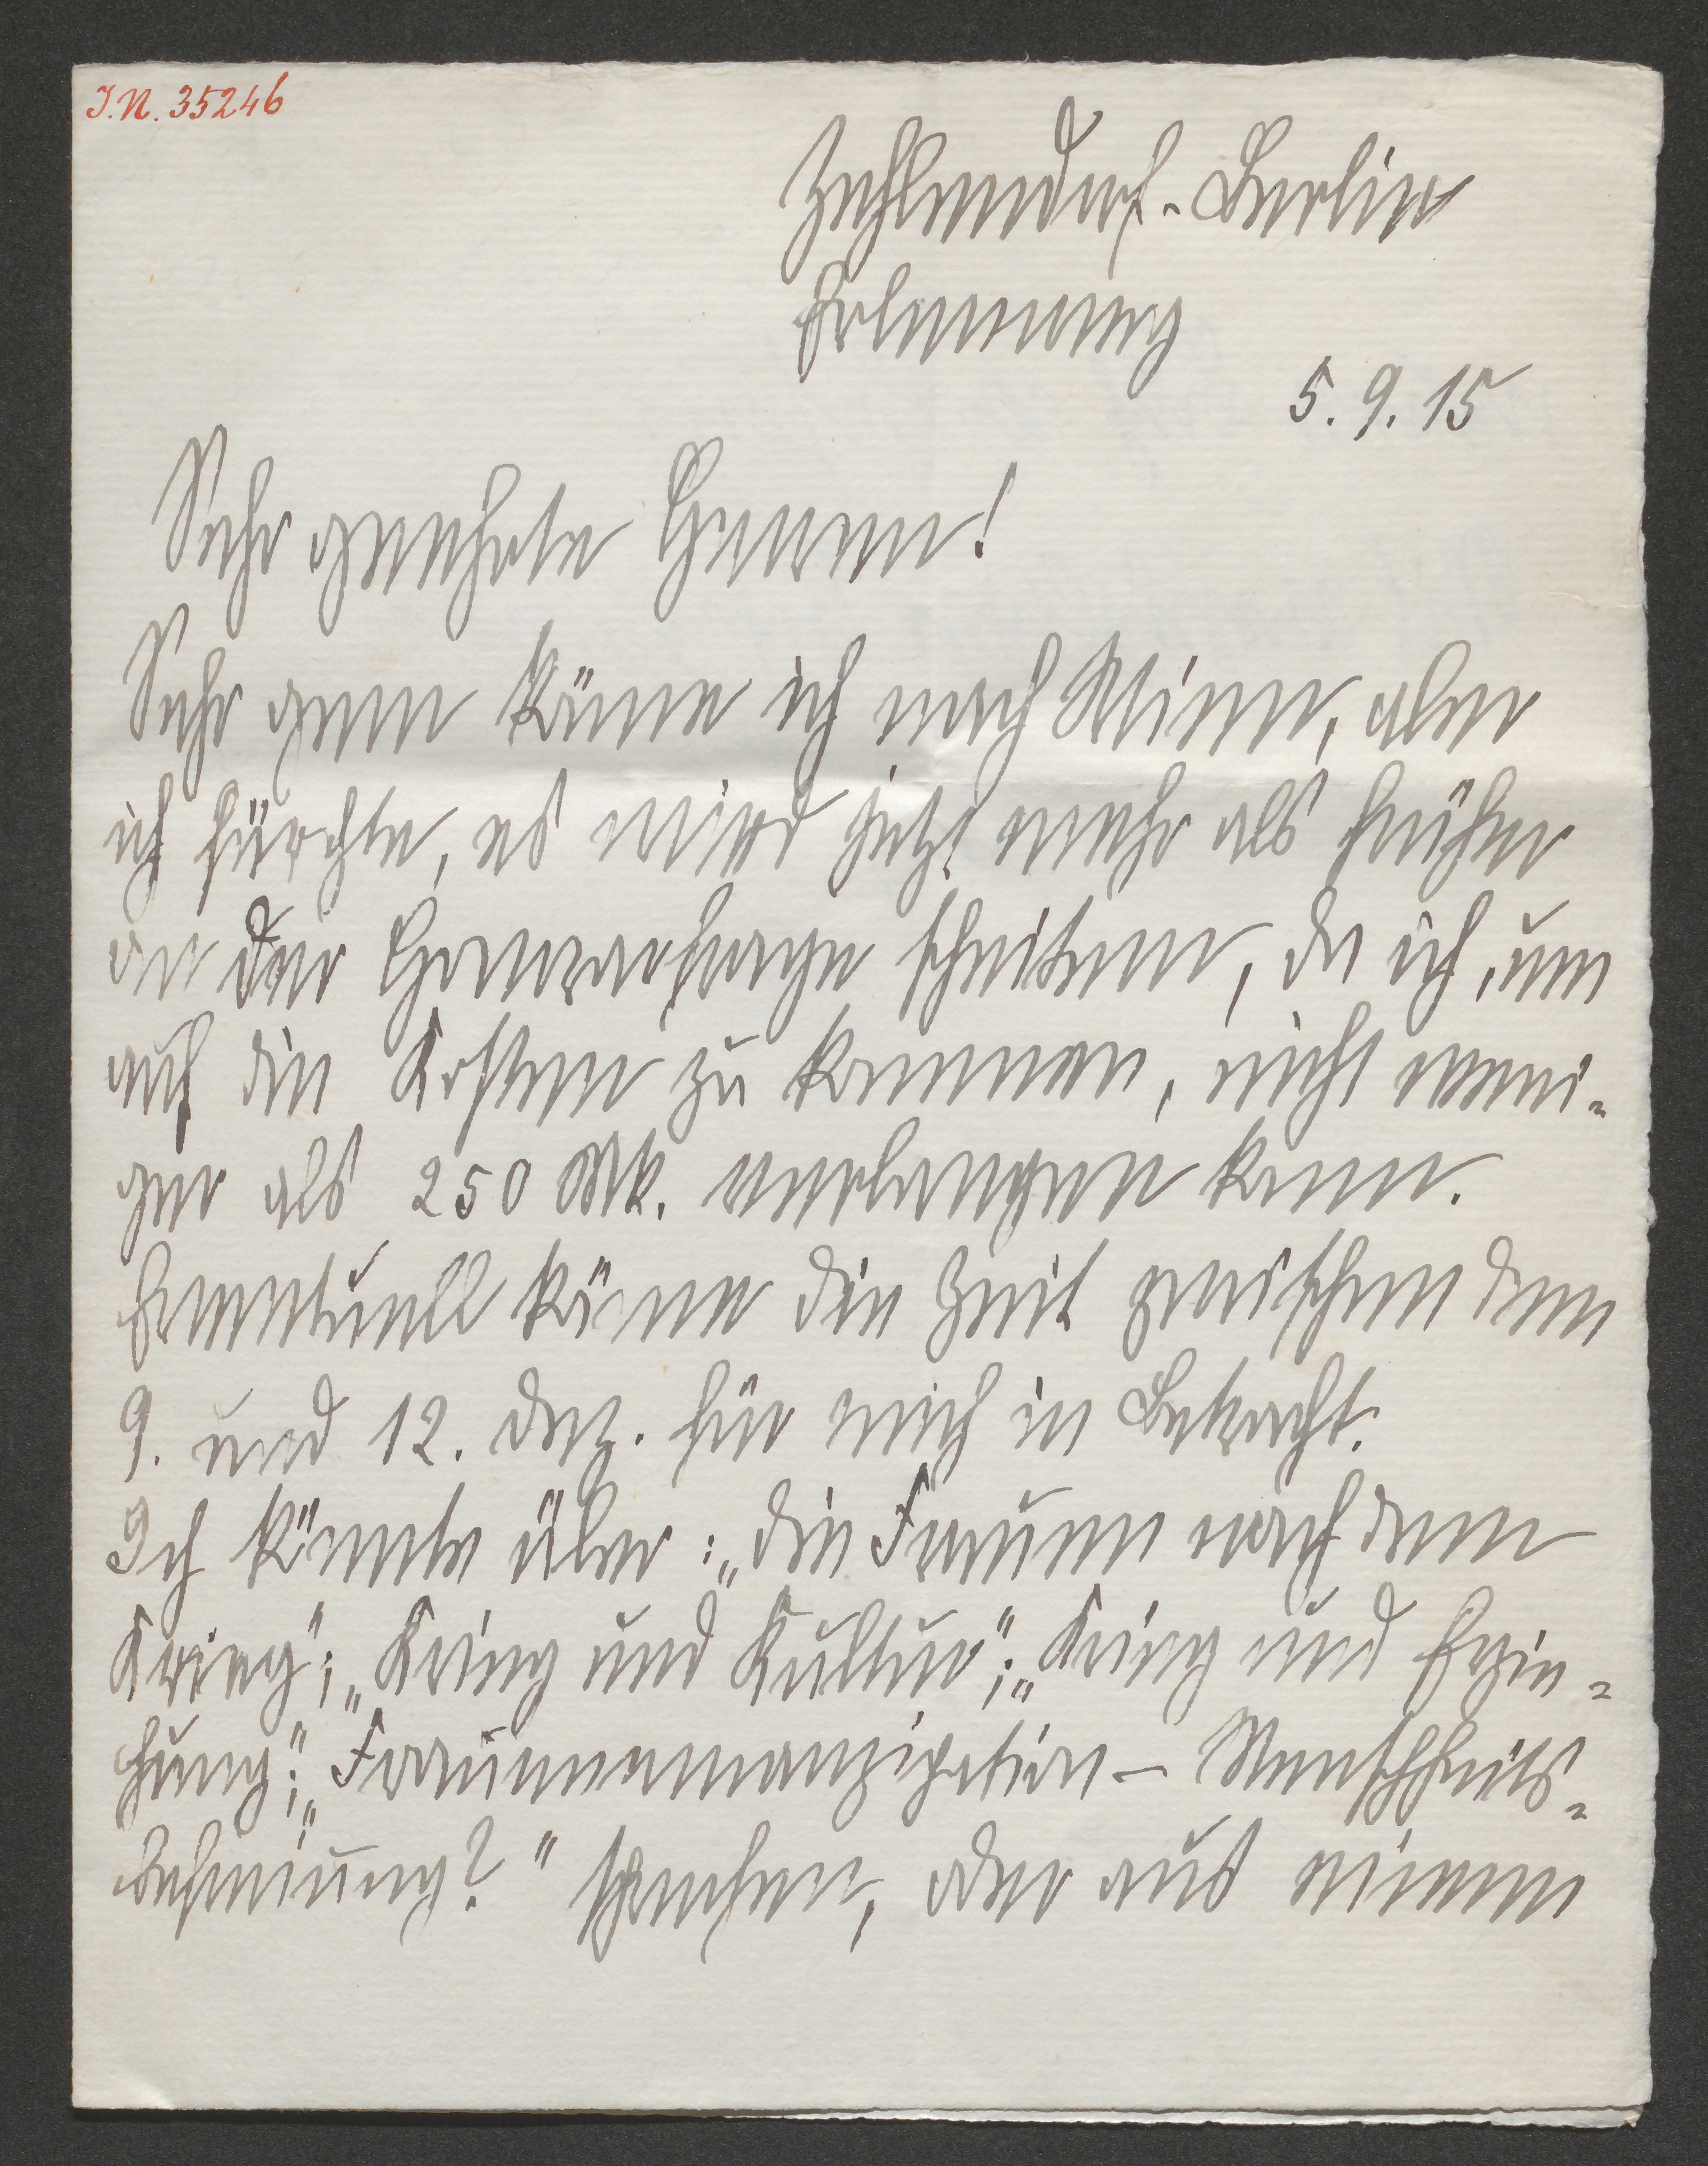 I.N. 35246
Zehlendorf-Berlin
Erlenweg
5. 9. 15
Sehr geehrte Herren!
Sehr gern käme ich nach Wien, aber
ich fürchte, es wird jetzt mehr als früher
an der Honorarfrage scheitern, da ich, um
auf die Kosten zu kommen, nicht weni-
ger als 250 Mk. verlangen kann.
Eventuell käme die Zeit zwischen dem
9. und 12. Dez. für mich in Betracht.
Ich könnte über: „Die Frauen nach dem
Krieg“; „Krieg und Kultur“; „Krieg und Erzie-
hung“; „Frauenemanzipation – Menschheits-
befreiung?“ sprechen, oder aus einem